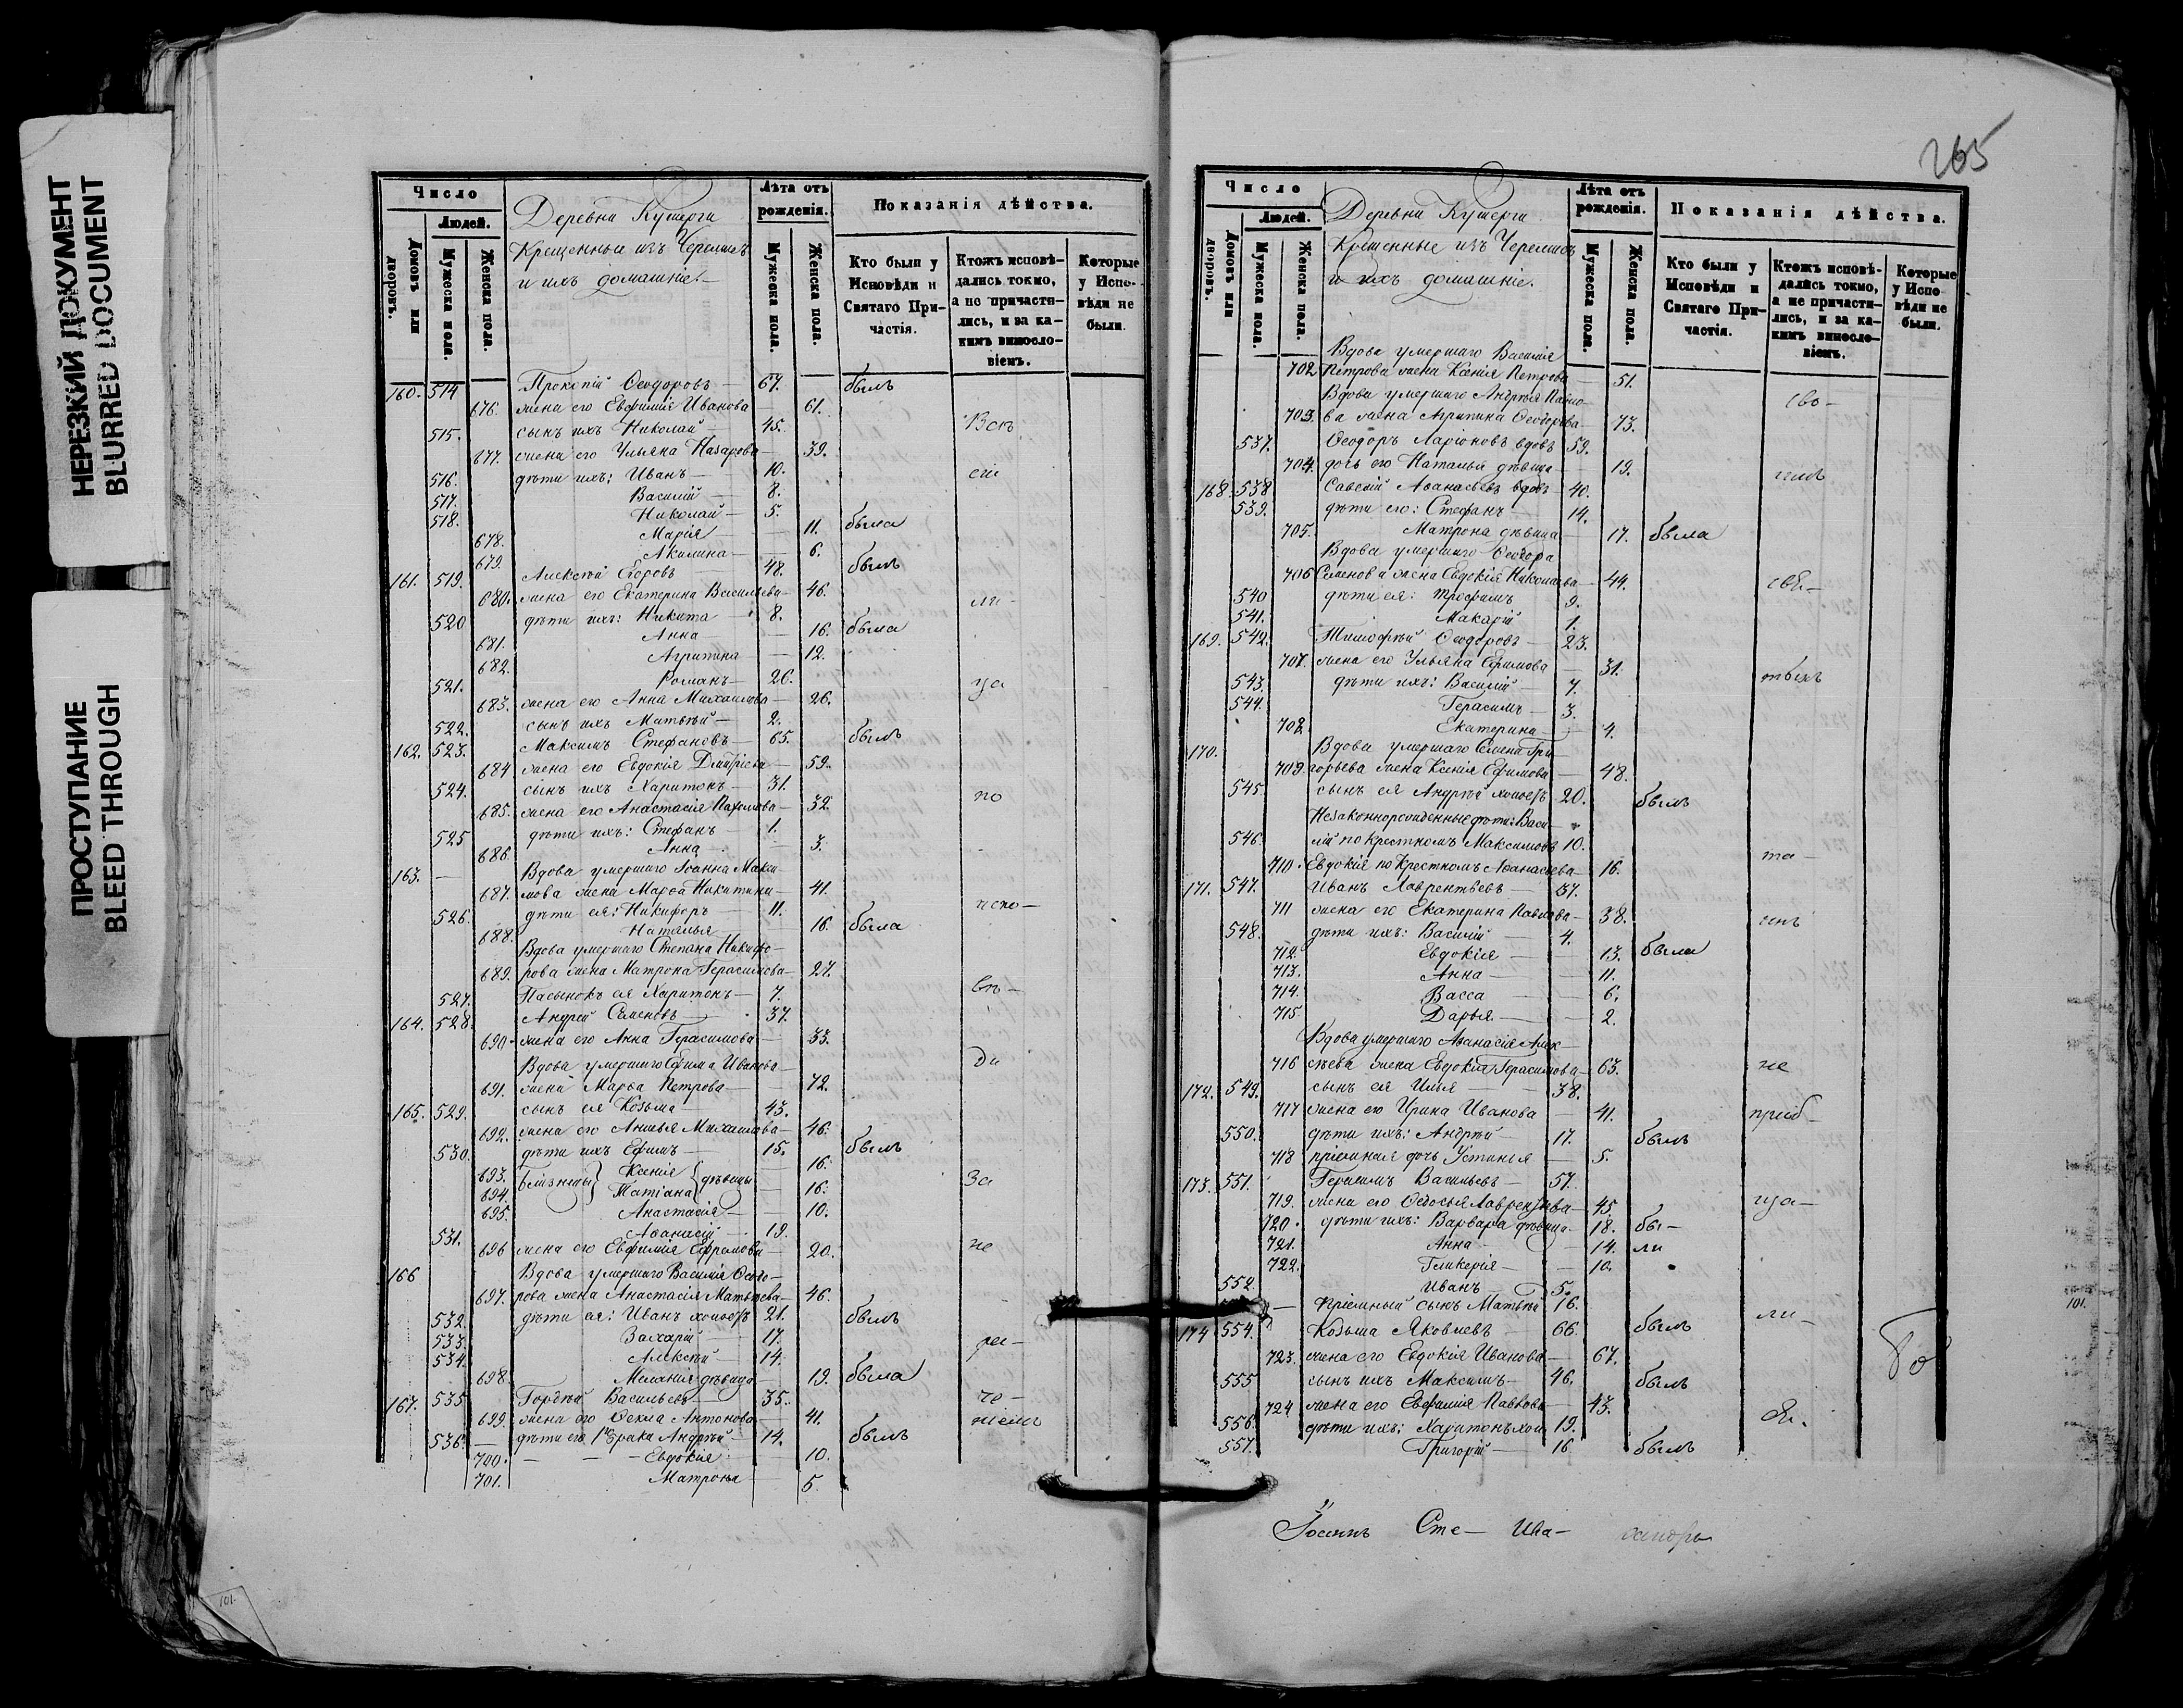 НЕРЕЗКИЙ ДОКУМЕНТ
BLURRED DOCUMENT
ПРОСТУПАНИЕ
BLEED THROUGH
Число
Домовъ или дворовъ.
Людей.
Мужеска пола.
Женска пола.
Деревни Кушерги
Крещенные изъ Черемисъ
и ихъ домашніе.
Лѣта отъ рожденія.
Мужеска пола.
Женска пола.
Показанія дѣйства.
Кто были у Исповѣди и Святаго Причастія.
Ктожъ исповѣ-
дались токмо,
а не причасти-
лись, и за ка-
кимъ винosло-
віемъ.
Которые у Испо-
вѣди не были.
160. 514 Прокопій Ѳеодоровъ — 67. былъ
676. жена его Евфимія Иванова 61.
515. сынъ ихъ Николай — 45. Всѣ
677. жена его Ульяна Назарова 39.
516. дѣти ихъ: Иванъ — 10. сіи
517. Василій — 8.
518. Николай — 5.
678. Марія — 11. была
679. Акилина — 6.
161. 519. Алексѣй Егоровъ 48. былъ
680. жена его Екатерина Васильева — 46. ли-
520 дѣти ихъ: Никита — 8.
681. Анна — 16. была
682. Агрипина — 12.
521. Романъ — 26. ца
683. жена его Анна Михаилова — 26.
522. сынъ ихъ Матвѣй — 2.
162. 523. Максимъ Стефановъ — 65. былъ
684 жена его Евдокія Дмитріева — 59.
524. сынъ ихъ Харитонъ — 31. по
685. жена его Анастасія Пахомова — 32.
525 дѣти ихъ: Стефанъ — 1.
686. Анна 3.
163. — Вдова умершаго Іоанна Макси
687. мова жена Марѳа Никитина — 41.
526. дѣти ея: Никифоръ — 11. испо-
688. Наталья 16. была
Вдова умершаго Степана Никифо-
689. рова жена Матрона Герасимова — 27.
527. Пасынокъ ея Харитонъ — 7. вѣ-
164. 528. Андрей Семеновъ — 37.
690. жена его Анна Герасимова — 33.
Вдова умершаго Ефима Иванова — ди
691. жена Марѳа Петрова — 72.
165. 529. сынъ ея Козьма 43.
692. жена его Анисья Михаилова — 46.
530. дѣти ихъ Ефимъ — 15. былъ
693. близнецы Ксенія дѣвицы 16. За
694. Татіана 16.
695. Анастасія — 10.
531. Аѳанасій — 19.
696 жена его Евфимія Ефремова — 20. не
166 Вдова умершаго Василія Ѳеодо-
697. рова жена Анастасія Матвѣева — 46.
532. дѣти ея: Иванъ холостъ 21. былъ
533. Захарій — 17. ра-
534. Алексѣй — 14.
698. Меланія дѣвица 19. была
167. 535 Гордѣй Васильевъ — 35. че-
699. жена его Ѳекла Антонова 41. ніемъ
536. — дѣти его 1го брака Андрѣй — 14. былъ
700. — — — Евдокія 10.
701. Матрона 5.
101.
265
Число
Домовъ или дворовъ.
Людей.
Мужеска пола.
Женска пола.
Деревни Кушерги
Крещенные изъ Черемисъ
и ихъ домашніе.
Лѣта отъ рожденія.
Мужеска пола.
Женска пола.
Показанія дѣйства.
Кто были у Исповѣди и Святаго Причастія.
Ктожъ исповѣ-
дались токмо,
а не причасти-
лись, и за ка-
кимъ винosло-
віемъ.
Которые у Испо-
вѣди не были.
Вдова умершаго Василія
702 Петрова жена Ксенія Петрова — 51.
Вдова умершаго Андрѣя Павло- свѣ-
703. ва жена Агрипина Ѳеодорова — 73.
537. Ѳеодоръ Ларіоновъ вдовъ 59.
704. дочь его Наталья дѣвица — 19.
168. 538 Савелій Аѳанасьевъ вдовъ 40.
539. дѣти его: Стефанъ — 14.
705. Матрона дѣвица — 17. была
Вдова умершаго Ѳеодора
706 Семенова жена Евдокія Николаева — 44.
540 дѣти ея: Трофимъ 9.
541. Макарій 1.
169. 542. Тимофѣй Ѳеодоровъ — 23.
707. жена его Ульяна Ефимова — 31.
543. дѣти ихъ: Василій — 7.
544. Герасимъ — 3.
708. Екатерина — 4.
170. Вдова умершаго Семена Гри
709. горьева жена Ксенія Ефимова — 48.
545. сынъ ея Андрѣй холостъ 20. былъ
Незаконнорожденные дѣти: Васи-
546. лій по крестномъ Максимовъ 10. та-
710. Евдокія по крестномъ Аѳанасьева — 16.
171. 547. Иванъ Лаврентьевъ — 37.
711 жена его Екатерина Павлова — 38. инъ
548. дѣти ихъ: Василій — 4.
712. Евдокія — 13. была
713. Анна — 11.
714. Васса — 6.
715. Дарья — 2.
Вдова умершаго Аѳанасія Алек-
716 сѣева жена Евдокія Герасимова — 63. не
172. 549. сынъ ея Илья — 38.
717 жена его Ирина Иванова — 41. приб-
550. дѣти ихъ: Андрѣй — 17. былъ
718 пріемная дочь Устинья — 5.
173. 551. Герасимъ Васильевъ — 57.
719. жена его Ѳедосья Лаврентьева — 45 ща-
720. дѣти ихъ: Варвара дѣвица 18. бы-
721. Анна — 14. ли
722. Гликерія — 10.
552. Иванъ 5.
— Пріемный сынъ Матвѣй 16. ли-
174 554. Козьма Яковлевъ — 66. былъ
723. жена его Евдокія Иванова — 67.
555 сынъ ихъ Максимъ — 46. былъ
724 жена его Евфимія Павлова 43. ся.
556. дѣти ихъ: Харитонъ хол 19.
557. Григорій — 16 былъ
101.
Іоаннъ Сте- Ива-